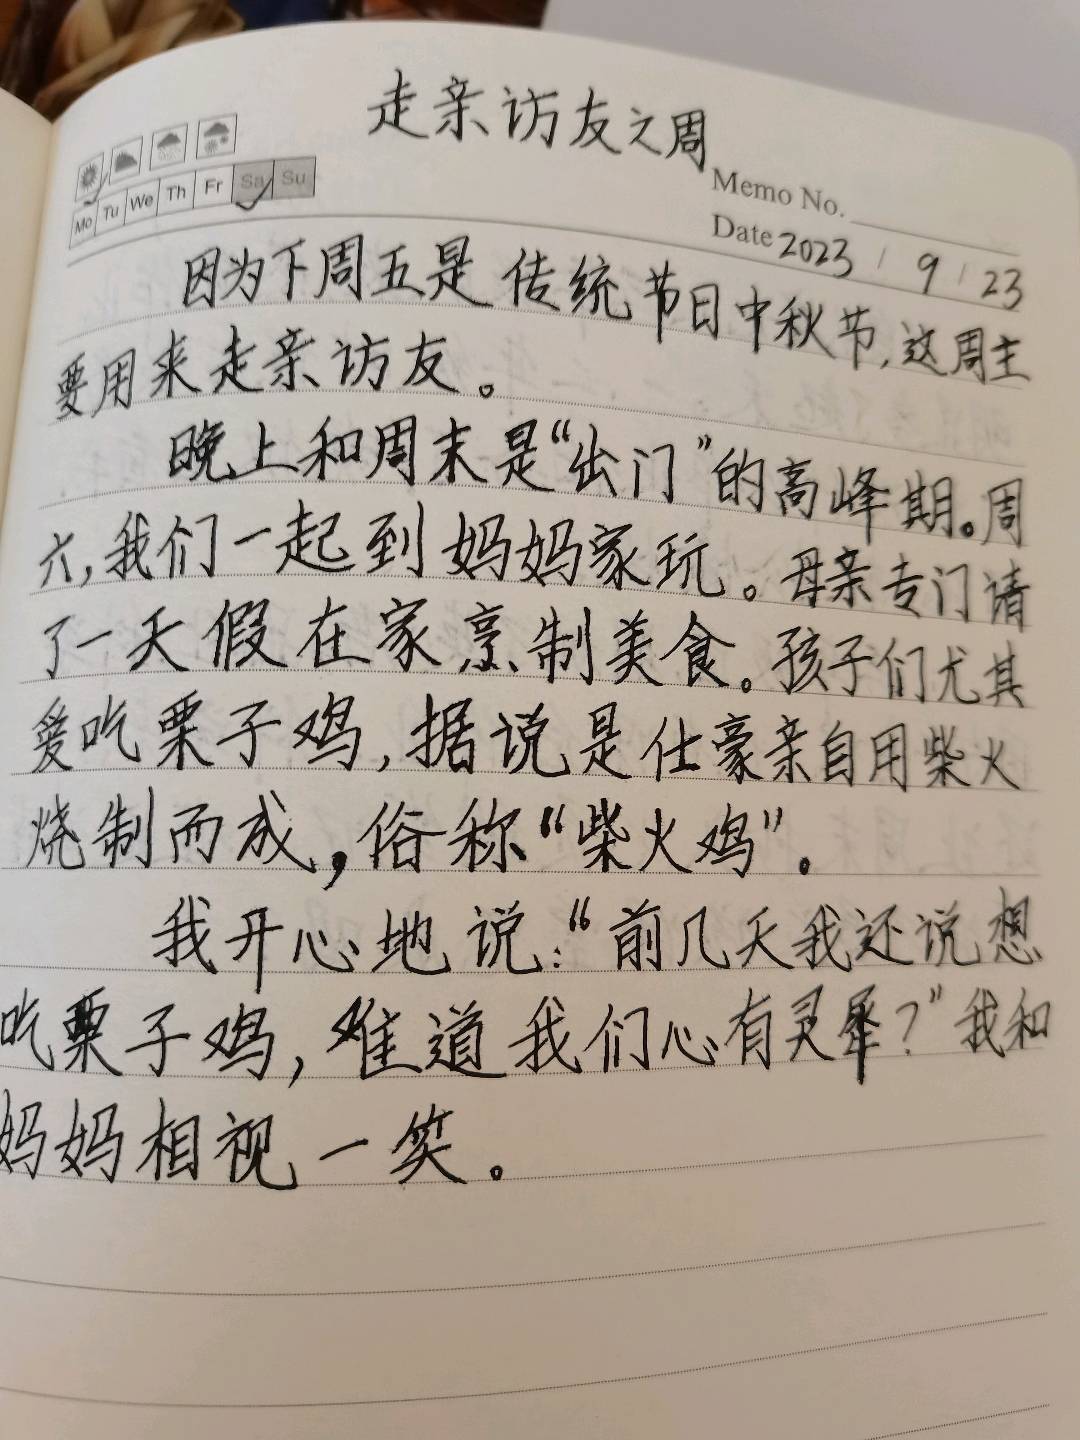 走亲访友之周
Mo Tu We Th Fr Sa Su
Memo No.
Date 2023 / 9 / 23
因为下周五是传统节日中秋节,这周主
要用来走亲访友。
晚上和周末是“出门”的高峰期。周
六,我们一起到妈妈家玩。母亲专门请
了一天假在家烹制美食。孩子们尤其
爱吃栗子鸡,据说是仕豪亲自用柴火
烧制而成,俗称“柴火鸡”。
我开心地说:“前几天我还说想
吃栗子鸡,难道我们心有灵犀?”我和
妈妈相视一笑。